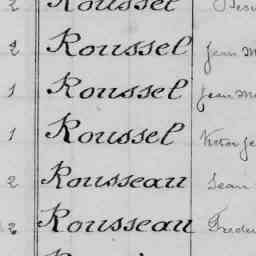 2 Roussel
2 Roussel Jean M
1 Roussel Jean M
1 Roussel Victor Je
2 Rousseau Jean
2 Rousseau Frede